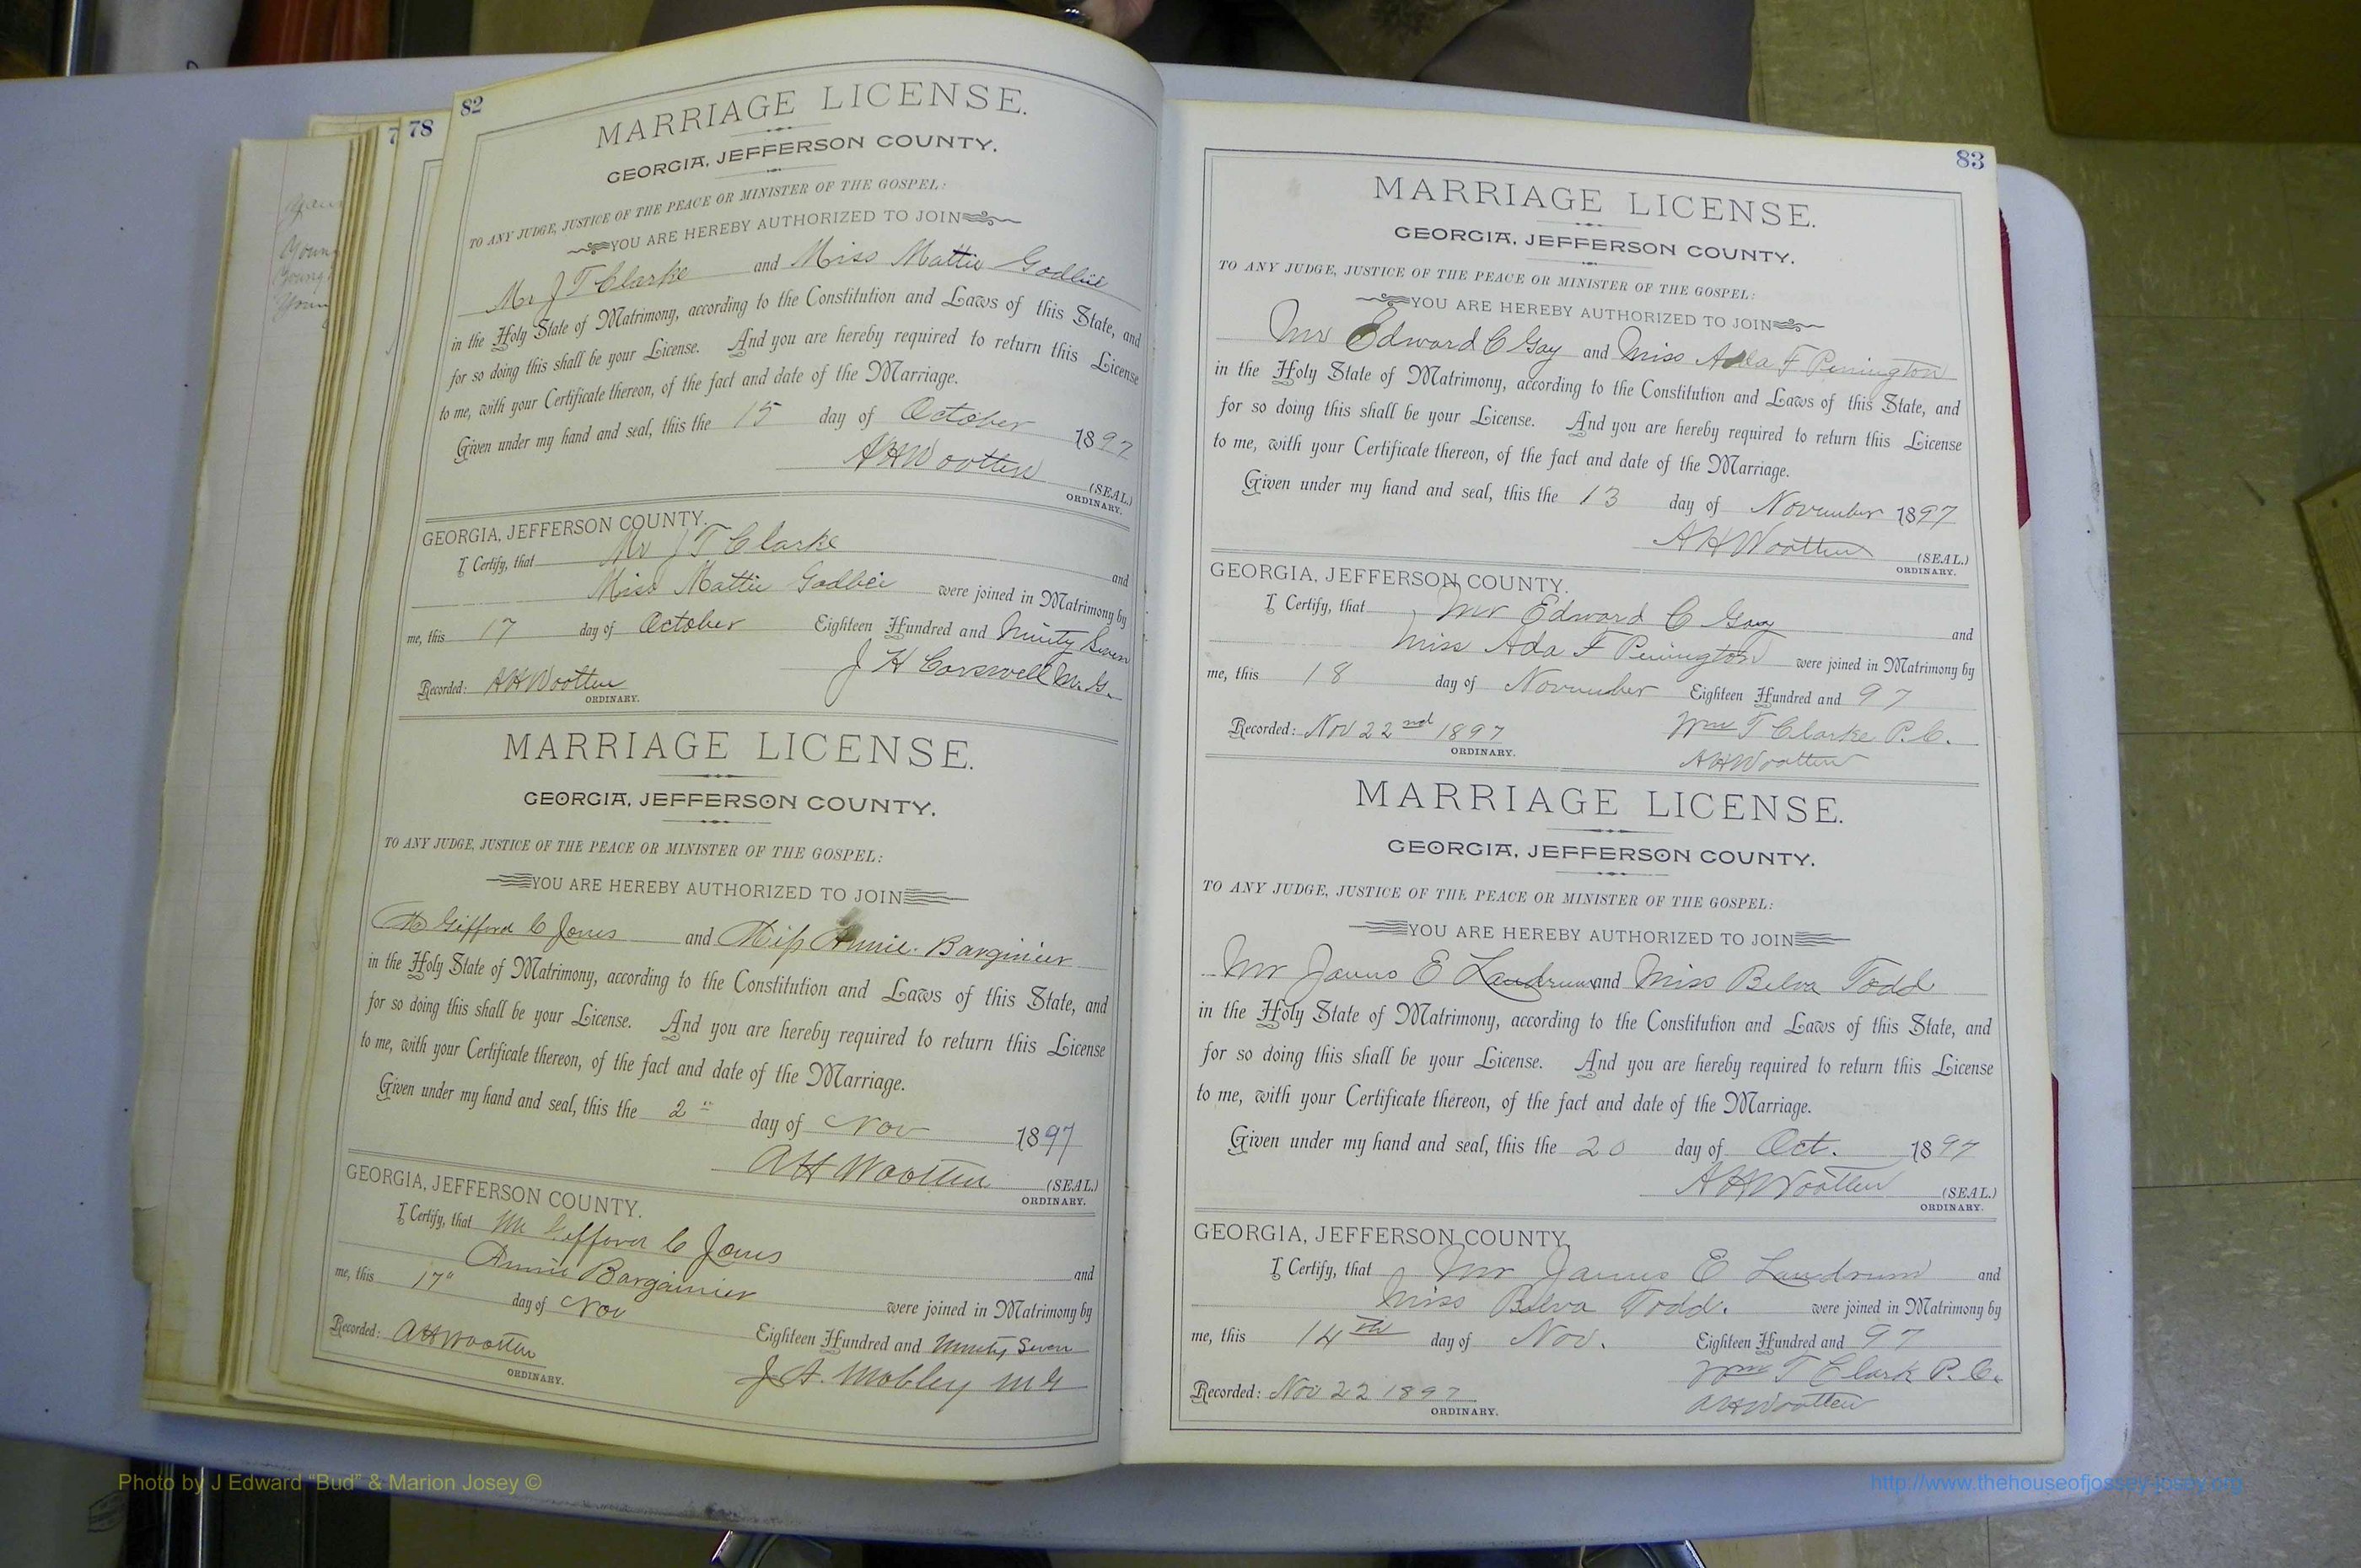 82
MARRIAGE LICENSE.
GEORGIA, JEFFERSON COUNTY.
TO ANY JUDGE, JUSTICE OF THE PEACE OR MINISTER OF THE GOSPEL:
YOU ARE HEREBY AUTHORIZED TO JOIN
Mr J T Clarke and Miss Mattie Godbee
in the Holy State of Matrimony, according to the Constitution and Laws of this State, and
for so doing this shall be your License. And you are hereby required to return this License
to me, with your Certificate thereon, of the fact and date of the Marriage.
Given under my hand and seal, this the 15 day of October 1897
A H Wootten (SEAL.)
ORDINARY.
GEORGIA, JEFFERSON COUNTY.
I Certify, that Mr J T Clarke and
Miss Mattie Godbee were joined in Matrimony by
me, this 17 day of October Eighteen Hundred and Ninety Seven
Recorded: A H Wootten J H Corswell M. G.
ORDINARY.
MARRIAGE LICENSE.
GEORGIA, JEFFERSON COUNTY.
TO ANY JUDGE, JUSTICE OF THE PEACE OR MINISTER OF THE GOSPEL:
YOU ARE HEREBY AUTHORIZED TO JOIN
Mr Gifford C Jones and Miss Annie Barginier
in the Holy State of Matrimony, according to the Constitution and Laws of this State, and
for so doing this shall be your License. And you are hereby required to return this License
to me, with your Certificate thereon, of the fact and date of the Marriage.
Given under my hand and seal, this the 2" day of Nov 1897
A H Wootten (SEAL.)
ORDINARY.
GEORGIA, JEFFERSON COUNTY.
I Certify, that Mr Gifford C Jones and
Annie Bargainier were joined in Matrimony by
me, this 17" day of Nov Eighteen Hundred and Ninety Seven
Recorded: A H Wootten J. A. Mobley M G
ORDINARY.
78
83
MARRIAGE LICENSE.
GEORGIA, JEFFERSON COUNTY.
TO ANY JUDGE, JUSTICE OF THE PEACE OR MINISTER OF THE GOSPEL:
YOU ARE HEREBY AUTHORIZED TO JOIN
Mr Edward C Gay and Miss Ada F Penington
in the Holy State of Matrimony, according to the Constitution and Laws of this State, and
for so doing this shall be your License. And you are hereby required to return this License
to me, with your Certificate thereon, of the fact and date of the Marriage.
Given under my hand and seal, this the 13 day of November 1897
A H Wootten (SEAL.)
ORDINARY.
GEORGIA, JEFFERSON COUNTY.
I Certify, that Mr Edward C Gay and
Miss Ada F Penington were joined in Matrimony by
me, this 18 day of November Eighteen Hundred and 97
Recorded: Nov 22nd 1897 Wm T Clarke P. C.
ORDINARY. A H Wootten
MARRIAGE LICENSE.
GEORGIA, JEFFERSON COUNTY.
TO ANY JUDGE, JUSTICE OF THE PEACE OR MINISTER OF THE GOSPEL:
YOU ARE HEREBY AUTHORIZED TO JOIN
Mr James E Landrum and Miss Belva Todd
in the Holy State of Matrimony, according to the Constitution and Laws of this State, and
for so doing this shall be your License. And you are hereby required to return this License
to me, with your Certificate thereon, of the fact and date of the Marriage.
Given under my hand and seal, this the 20 day of Oct. 1897
A H Wootten (SEAL.)
ORDINARY.
GEORGIA, JEFFERSON COUNTY.
I Certify, that Mr James E Landrum and
Miss Belva Todd. were joined in Matrimony by
me, this 14th day of Nov. Eighteen Hundred and 97
Recorded: Nov 22 1897 Wm T Clark P. C.
ORDINARY. A H Wootten
Photo by J Edward “Bud” & Marion Josey ©
http://www.thehouseofjossey-josey.org